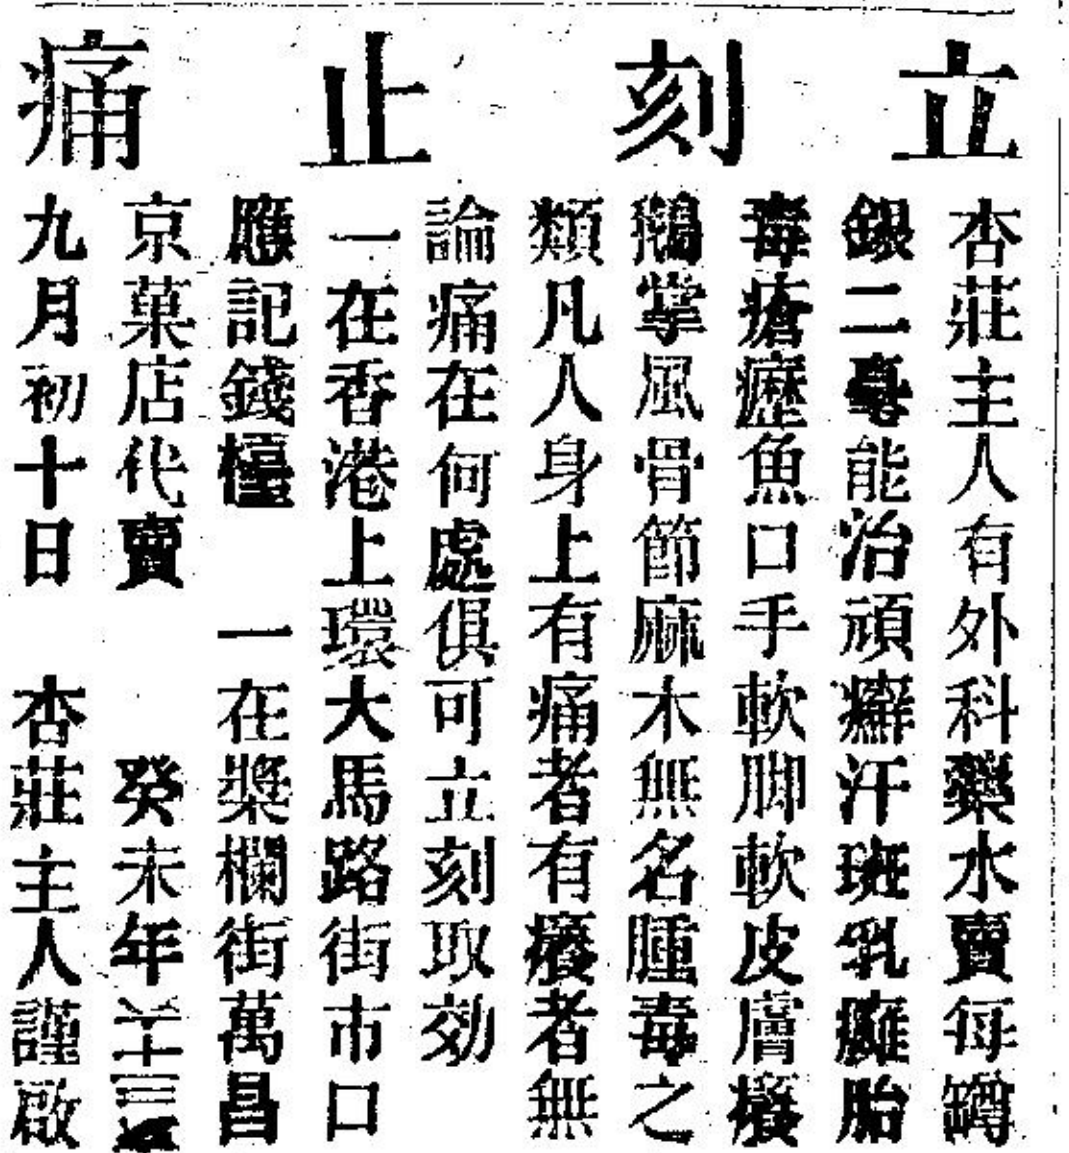 立刻止痛
杏莊主人有外科藥水賣每罇
銀二毫能治頑癬汗斑乳癰胎
毒瘡癧魚口手軟脚軟皮膚癢
鵝掌風骨節麻木無名腫毒之
類凡人身上有痛者有癢者無
論痛在何處俱可立刻取効
一在香港上環大馬路街市口
應記錢檯　一在槳欄街萬昌
京菓店代賣　癸未年
九月初十日　杏莊主人謹啟